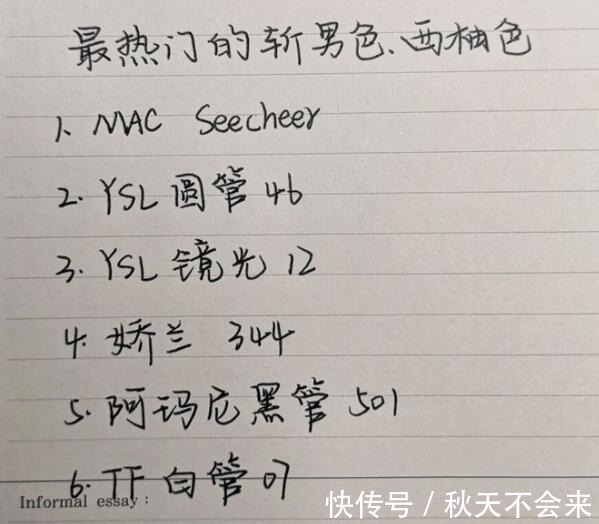 最热门的斩男色、西柚色
1、MAC Seecheer
2. YSL 圆管 46
3. YSL 镜光 12
4. 娇兰 344
5. 阿玛尼黑管 501
6. TF 白管 07
Informal essay :
快传号 / 秋天不会来